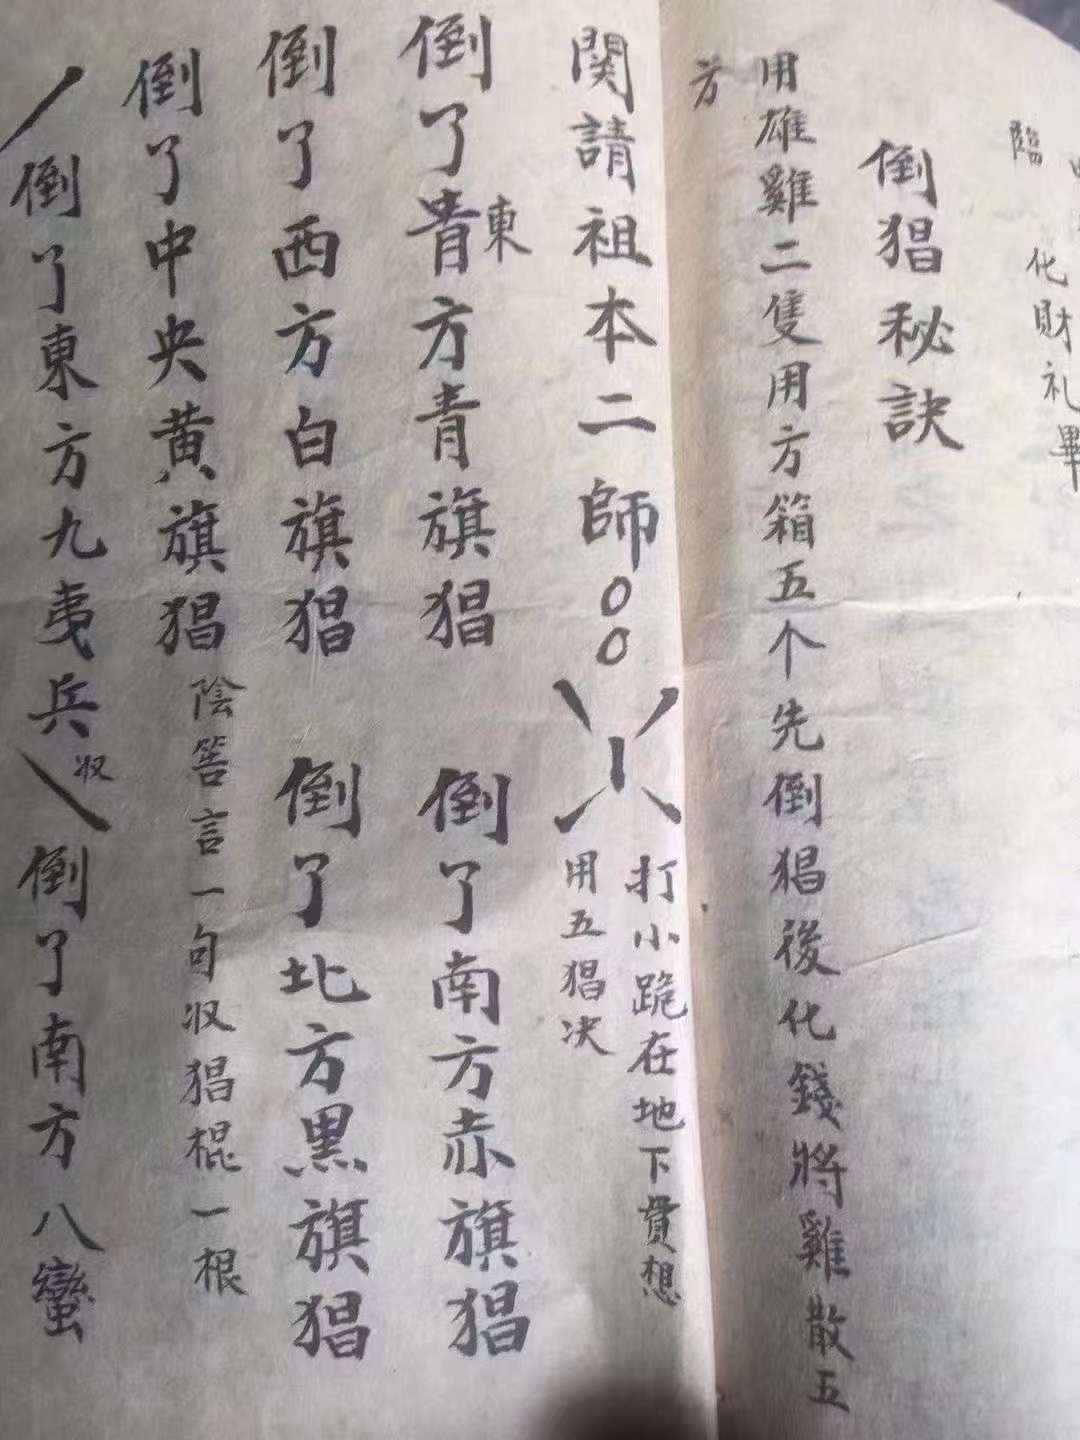 臨
化財礼畢
倒猖秘訣
用雄雞二隻用方箱五个先倒猖後化錢將雞散五
方
関請祖本二師〇〇
打小跪在地下貫想
用五猖决
倒了青方青旗猖 倒了南方赤旗猖
東
倒了西方白旗猖 倒了北方黑旗猖
倒了中央黄旗猖
陰筶言一句収猖棍一根
倒了東方九夷兵 倒了南方八蠻
収